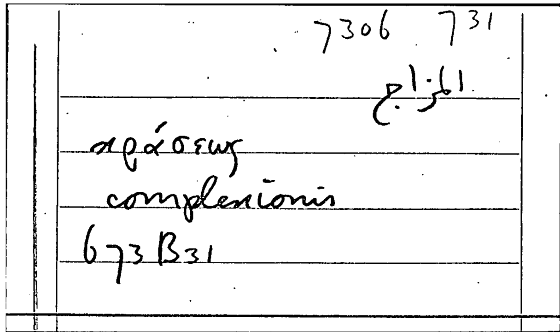 7306 731
المزاج
κράσεως
complexionis
673B31